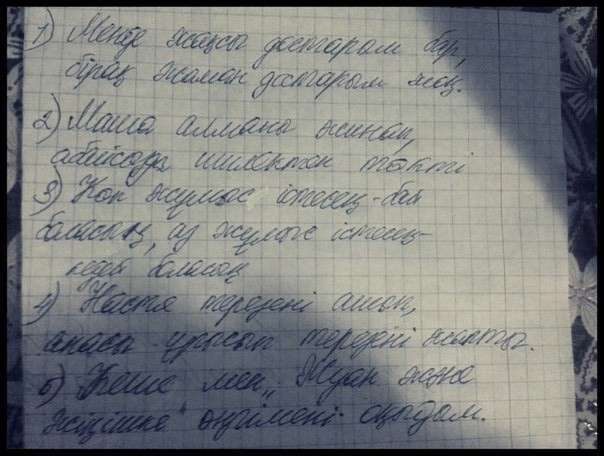 1) Менде жақсы достарым бар,
бірақ жаман достарым жоқ.
2) Маша алманы жинап,
абайсызда шелектен төкті
3) Көп жұмыс істесең-бай
боласың, аз жұмыс істесең-
кедей боласың
4) Настя терезені ашып,
анасы ұрысып терезені жапты.
5) Кеше мен "Жуан және
жіңішке" әңгімені оқыдым.